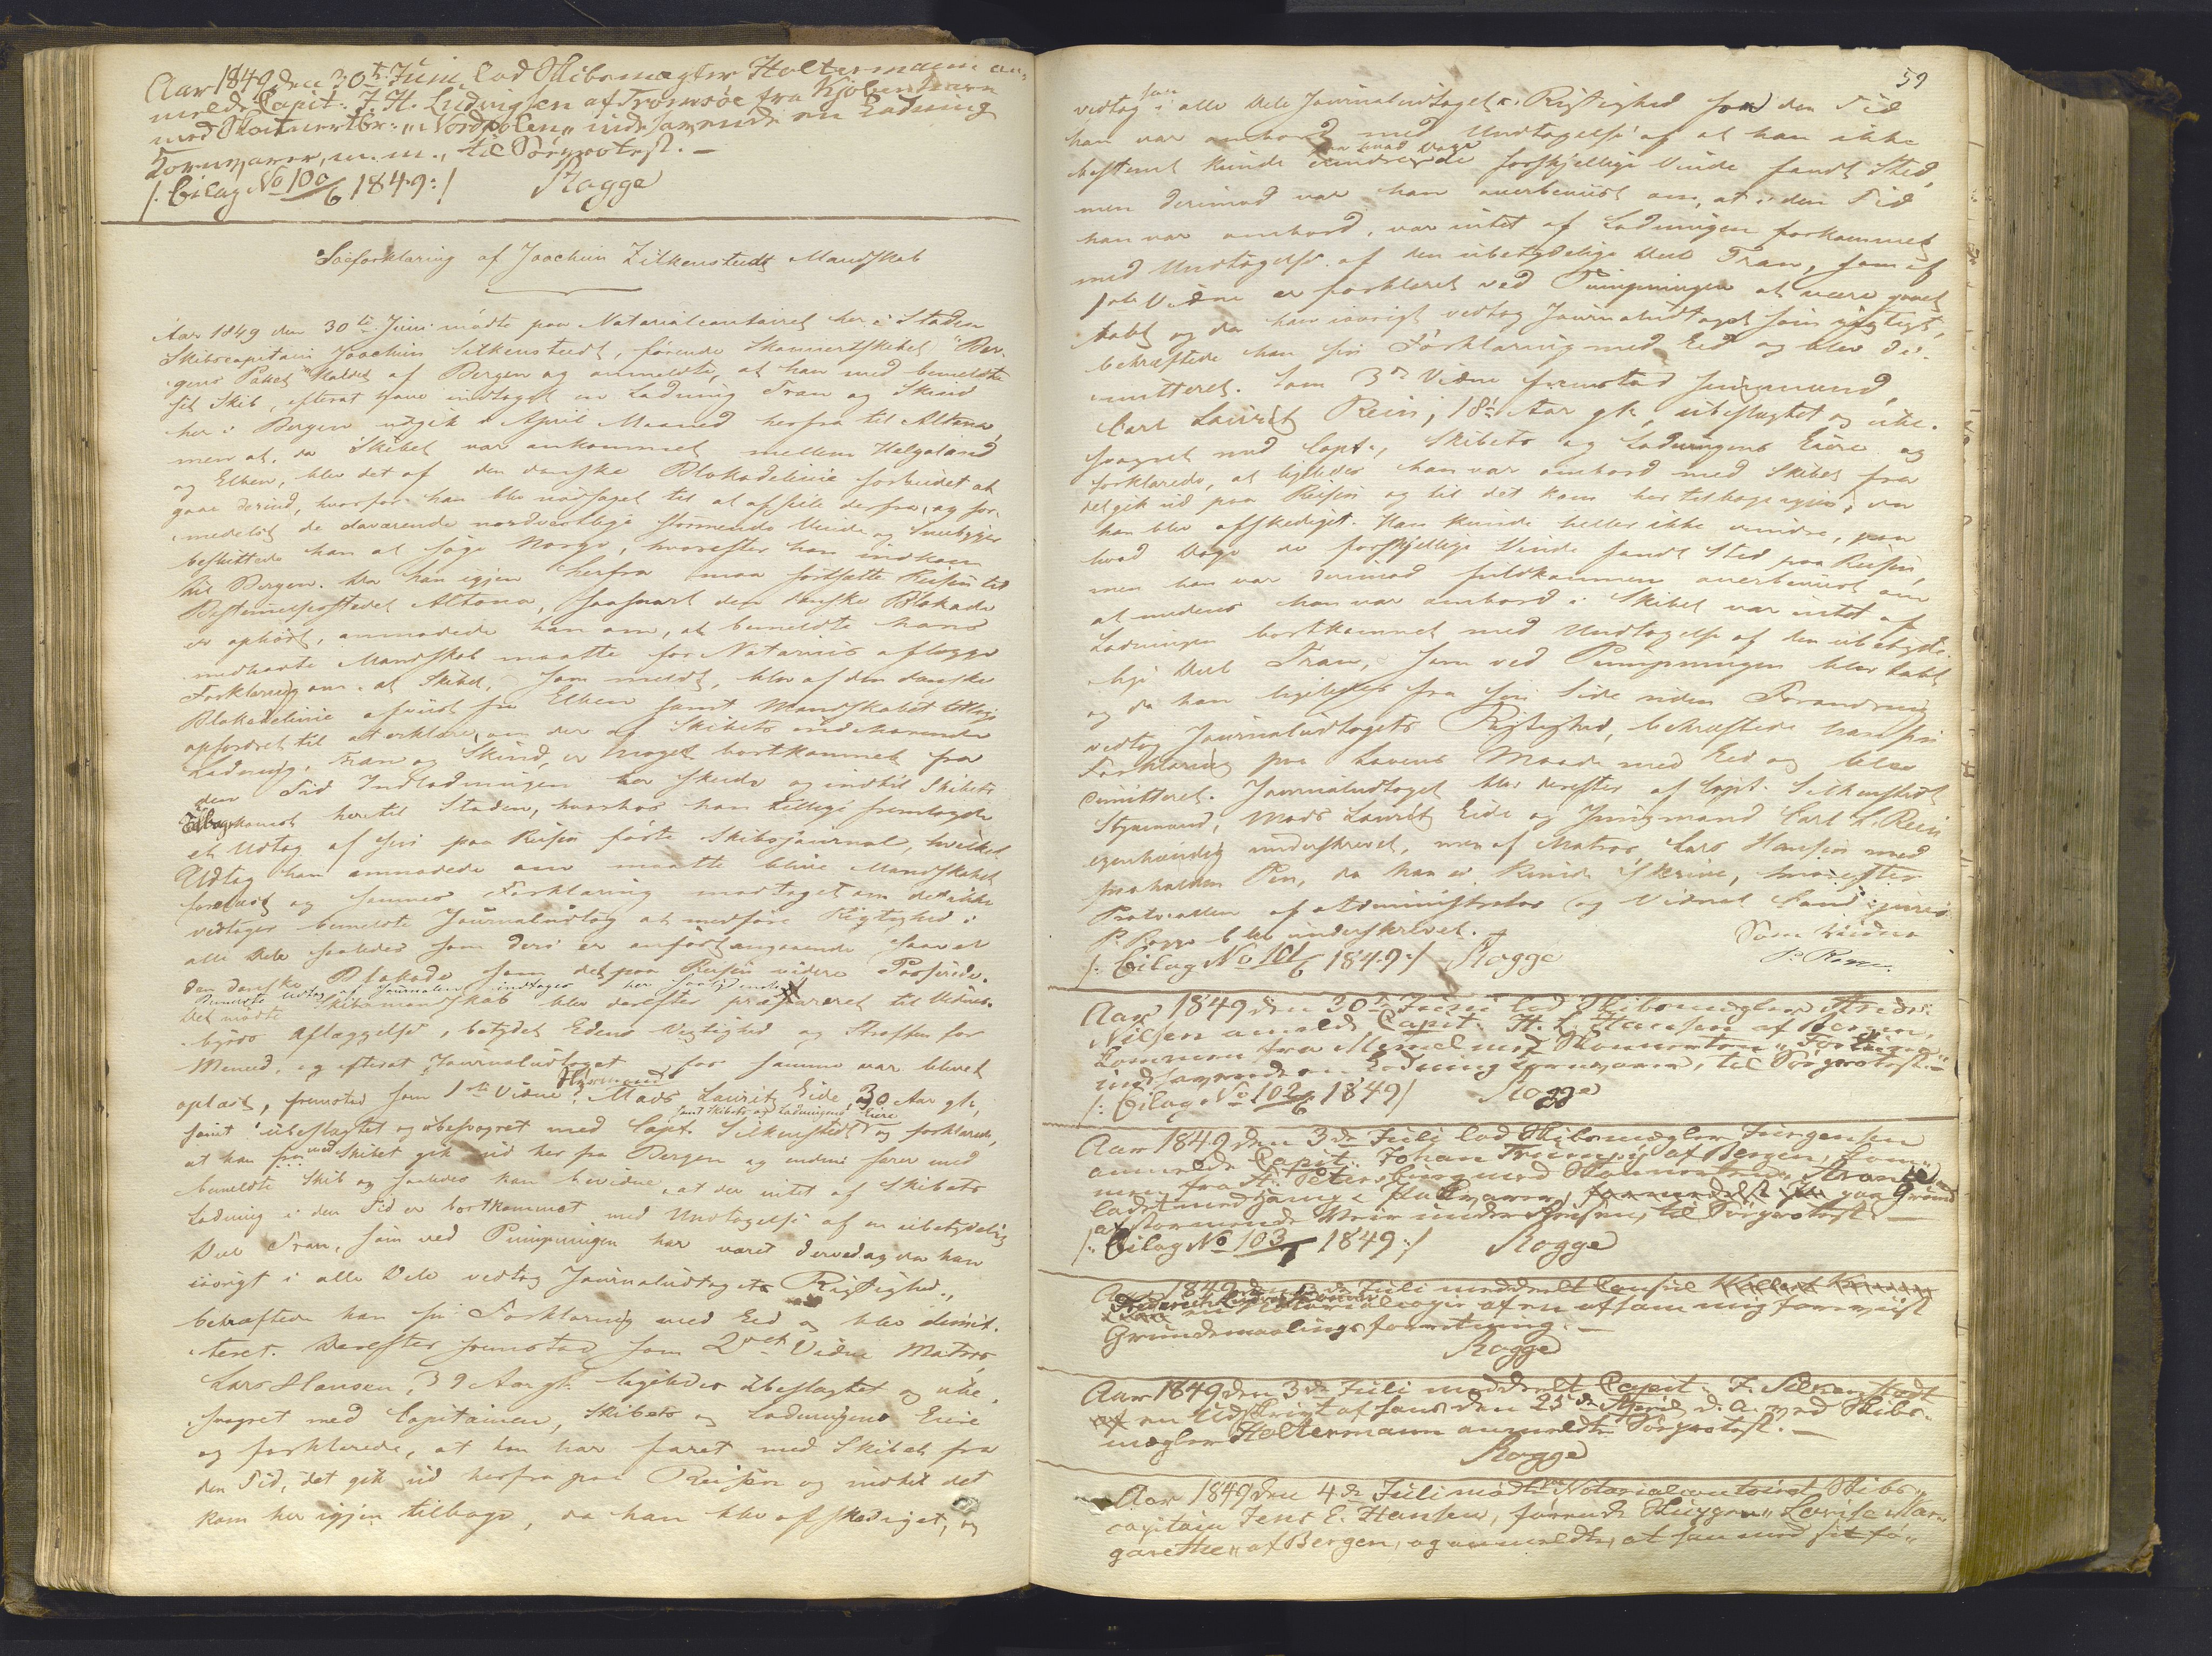 Aar 1849 den 30te Juni lod Skibsmægler Holtermann an-
melde Capit: J. H. Ludvigsen af Tromsöe fra Kjöbenhavn
med Skonnertbr: „Nordpolen„ indehavende en Ladning
Kornvarer, m.m., til Söeprotest. —
/: Bilag No 100/6 1849 :/ Rogge
Söeforklaring af Joachim Zilkenstedts Mandskab
Aar 1849 den 30te Juni mödte paa Notarialcontoiret her i Staden
Skibscapitain Joachim Silkenstedt, förende Skonnertskibet "Ber-
gens Paket" kaldet af Bergen og anmeldte, at han med bemeldte
sit Skib, efterat have indtaget en Ladning Tran og Skind
her i Bergen udgik i April Maaned herfra til Altona,
men at, da Skibet var ankommet mellem Helgoland
og Elben, blev det af den danske Blokadelinie forbudet at
gaae derind, hvorfor han blev nödsaget til at afseile derfra, og for-
medelst de daværende nordvestlige stormende Vinde og Sneebyger
besluttede han at söge Norge, hvorefter han indkom
til Bergen. Da han igjen herfra maa fortsætte Reisen til
Bestemmelsesstedet Altona, saasnart den danske Blokade
er ophört, anmodede han om, at bemeldte hans
medhavte Mandskab maatte for Notarius aflægge
Forklaring om at Skibet, som meldt, blev af den danske
Blokadelinie afviist fra Elben samt Mandskabet tillige
opfordret til at erklære, om der af Skibets indehavende
Ladning, Tran og Skind, er noget bortkommet fra
den Tid Indladningen her skede og indtil Skibets
Tilbagekomst hertil Staden, hvorhos han tillige fremlagde
et Udtog af sin paa Reisen förte Skibsjournal, hvilket
Udtog han anmodede om maatte blive Mandskabet
forelæst og sammes Forklaring modtaget om det ikke
vedtager bemeldte Journaludtog at medföre Rigtighed i
alle Dele saaledes som deri er anfört angaaende saavel
den danske Blokade som det paa Reisen videre Passerede.
Bemeldte Udtog af Journalen indtages her saalydende
Det mödte Skibsmandskab blev derefter præpareret til Vidnes-
byrds Aflæggelse, betydet Edens Vigtighed og Straffen for
Meened, og efterat Journaludtoget for samme var blevet
oplæst, fremstod som 1ste Vidne: Styrmand Mads Lauritz Eide, 30 Aar gl.,
samt ubeslægtet og ubesvogret med Capt. Silkenstedt samt Skibets og Ladningens Eiere og forklarede,
at han fra med Skibet gik ud her fra Bergen og endnu farer med
bemeldte Skib og saaledes kan bevidne, at der intet af Skibets
Ladning i den Tid er bortkommet med Undtagelse af en ubetydelig
Deel Tran, som ved Pumpningen har været derved og da han
iövrigt i alle Dele vedtog Journaludtogets Rigtighed,
bekræftede han sin Forklaring med Eed og blev dimit-
teret. Derefter fremstod som 2det Vidne Matros
Lars Hansen, 39 Aar gl. ligeledes ubeslægtet og ube-
svogret med Capitainen, Skibets og Ladningens Eiere
og forklarede, at han har faret med Skibet fra
den Tid, det gik ud herfra paa Reisen og indtil det
kom her igjen tilbage, da han blev afskediget, og
59
vedtog han i alle Dele Journaludtogets Rigtighed for den Tid
han var ombord med Undtagelse af at han ikke
bestemt kunde erindre paa hvad Dage de forskjellige Vinde fandt Sted,
men derimod var han overbeviist om, at i den Tid
han var ombord, var intet af Ladningen forkommet
med Undtagelse af den ubetydelige Deel Tran, som af
1ste Vidne er forklaret ved Pumpningen at være gaaet
tabt og da han iövrigt vedtog Journaludtoget som rigtigt,
bekræftede han sin Forklaring med Eed og blev di-
mitteret. Som 3die Vidne fremstod Jungmand
Carl Lauritz Rein, 18 Aar gl., ubeslægtet og ube-
svogret med Capt., Skibets og Ladningens Eiere og
forklarede, at ligeledes han var ombord med Skibet fra
det gik ud paa Reisen og til det kom her tilbage igjen, da
han blev afskediget. Han kunde heller ikke erindre, paa
hvad Dage de forskjellige Vinde fandt Sted paa Reisen,
men han var derimod fuldkommen overbeviist om
at medens han var ombord i Skibet var intet af
Ladningen bortkommet med Undtagelse af den ubetyde-
lige Deel Tran, som ved Pumpningen blev tabt
og da han ligeledes fra sin Side uden Forandring
vedtog Journaludtogets Rigtighed, bekræftede han sin
Forklaring paa Lovens Maade med Eed og blev
dimitteret. Journaludtoget blev derefter af Capt. Silkenstedt
Styrmand, Mads Lauritz Eide og Jungmand Carl L. Rein
egenhændig underskrevet, men af Matros Lars Hansen med
paaholden Pen, da han ei kunde skrive, hvorefter
Protocollen af Administrator og Vidnet Cand: juris
P. Rogge blev underskrevet. —
Som Vidne
/: Bilag No 101/6 1849 :/ Rogge
Aar 1849 den 30te Juni lod Skibsmægler Fredr:
Nilsen anmelde Capit: H. L. Hansen af Bergen,
kommen fra Memel med Skonnerten „Fortuna„
indehavende en Ladning Kornvarer, til Söeprotest. —
/: Bilag No 102/6 1849 :/ Rogge
Aar 1849 den 3de Juli lod Skibsmægler Jürgensen
anmelde Capit: Johan Trumpy af Bergen, kom-
men fra St. Petersburg med Skonnerten „Astrea„
ladet med Hamp & Stykvarer, formedelst paa Grund
af stormende Veir under Reisen, til Söeprotest —
/: Bilag No 103/7 1849 :/ Rogge
Aar 1849 den 3de Juli meddeelt Consul
Notarialcopie af en af ham mig foreviist
Grundmaalingsforretning. —
Rogge
Aar 1849 den 3de Juli meddeelt Capit: J. Silkenstedt
en Udskrivt af hans den 25de April d.A. ved Skibs-
mægler Holtermann anmeldte Söeprotest. —
Rogge
Aar 1849 den 4de Juli mödte paa Notarialcontoiret Skibs-
capitain Jens E. Hansen, förende Skuppen „Lovise Mar-
garethe„ af Bergen, og anmeldte, at han med sit fö-